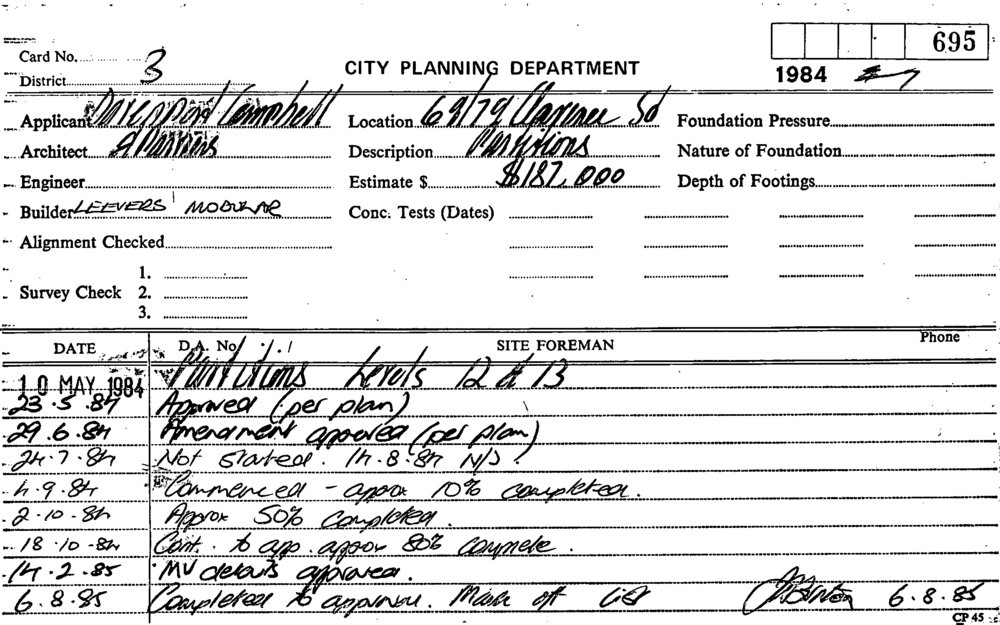 695
Card No. 3
District
CITY PLANNING DEPARTMENT
1984
Applicant Davenport Campbell
Location 69/79 Clarence Sd
Foundation Pressure
Architect & Partners
Description Partitions
Nature of Foundation
Engineer
Estimate $ $187,000
Depth of Footings
Builder LEEVERS MODULAR
Conc. Tests (Dates)
Alignment Checked
1.
Survey Check 2.
3.
DATE D.A. No. SITE FOREMAN Phone
10 MAY 1984 Partitions Levels 12 & 13
23.5.84 Approved (per plan)
29.6.84 Amendment approved (per plan)
24.7.84 Not started. 14.8.84 N/S.
4.9.84 Commenced - approx 10% completed.
2.10.84 Approx 50% completed.
18.10.84 Cont. to app. approx 80% complete.
14.2.85 MV details approved.
6.8.85 Completed to approval. Mark off 6.8.85
CP 45